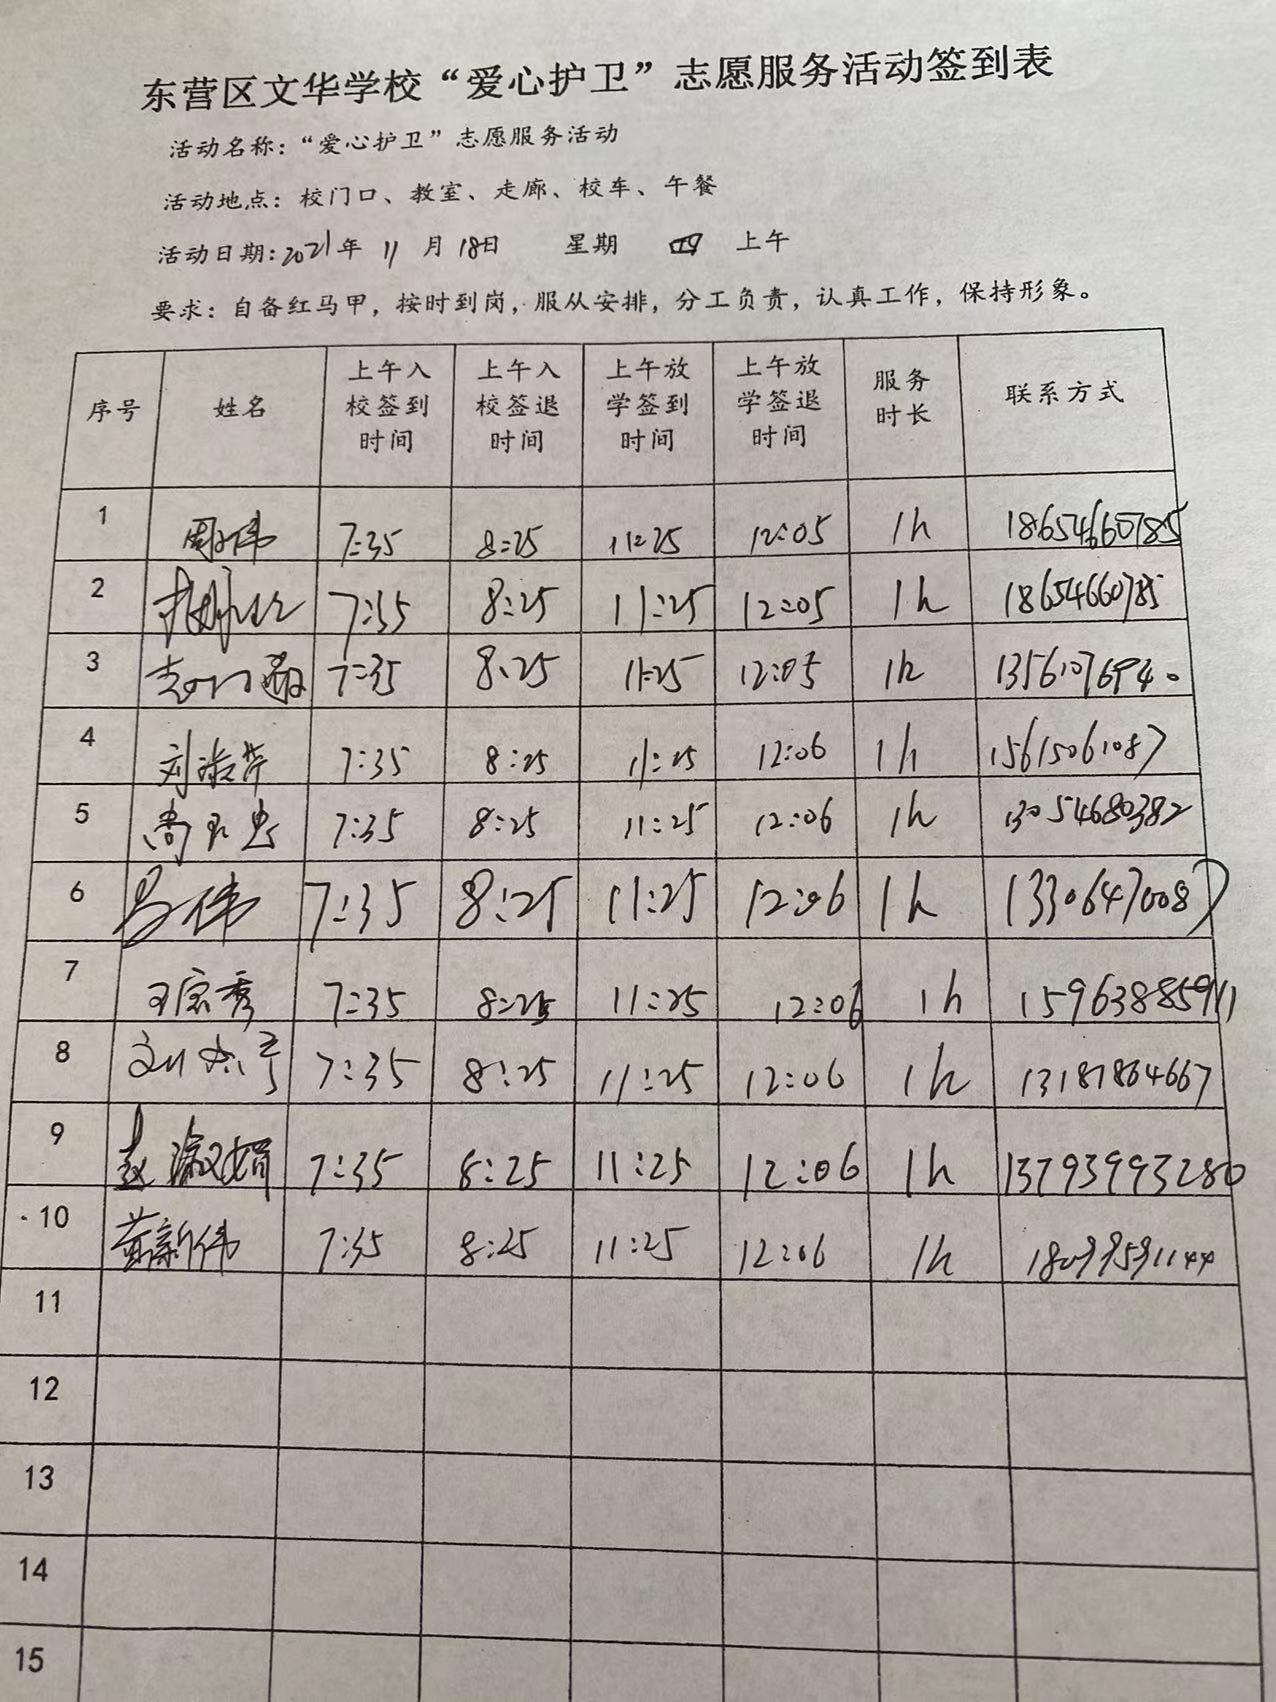 东营区文华学校“爱心护卫”志愿服务活动签到表
活动名称：“爱心护卫”志愿服务活动
活动地点：校门口、教室、走廊、校车、午餐
活动日期：2021年 11 月 18日 星期 四 上午
要求：自备红马甲，按时到岗，服从安排，分工负责，认真工作，保持形象。
序号 姓名 上午入校签到时间 上午入校签退时间 上午放学签到时间 上午放学签退时间 服务时长 联系方式
1 7:35 8:25 11:25 12:05 1h 18654660785
2 7:35 8:25 11:25 12:05 1h 18654660785
3 7:35 8:25 11:25 12:05 1h 13561076940
4 7:35 8:25 11:25 12:06 1h 15615061087
5 7:35 8:25 11:25 12:06 1h 13054680382
6 7:35 8:25 11:25 12:06 1h 13306470087
7 7:35 8:25 11:25 12:06 1h 15963885911
8 7:35 8:25 11:25 12:06 1h 13181864667
9 赵淑娟 7:35 8:25 11:25 12:06 1h 13793993280
10 黄新伟 7:35 8:25 11:25 12:06 1h
11
12
13
14
15